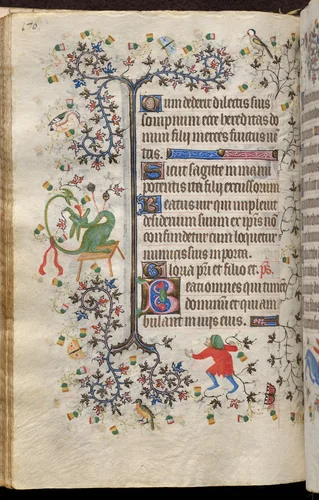 Cum dederit dilectis suis
sompnium ecce hereditas do
mini filij merces fructus ue
tris.
Sicut sagitte in manu
potentis ita filij excussorum
Beatus uir qui impleuit
desiderium suum ex ipsis no
confundetur cum loquetur
inimicis suis in porta.
Gloria pri et filio et. ps.
Beati omnes qui timet
dominum et qui am
bulant in uijs eius.